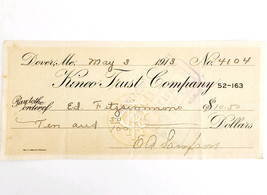 Dover, Me. May 3 1913 No. 4104
Kineo Trust Company 52-163
Pay to the
order of Ed. Fitzsimmons $10.50
Ten and 50/100 Dollars